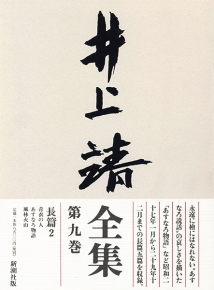 井上靖
全集
第九巻
永遠に檜にはなれない〝あす
なろ説話〟の哀しさを描いた
「あすなろ物語」など昭和二
十七年一月から二十九年十
二月までの長篇五篇を収録。
長篇2
青衣の人
あすなろ物語
風林火山
新潮社版